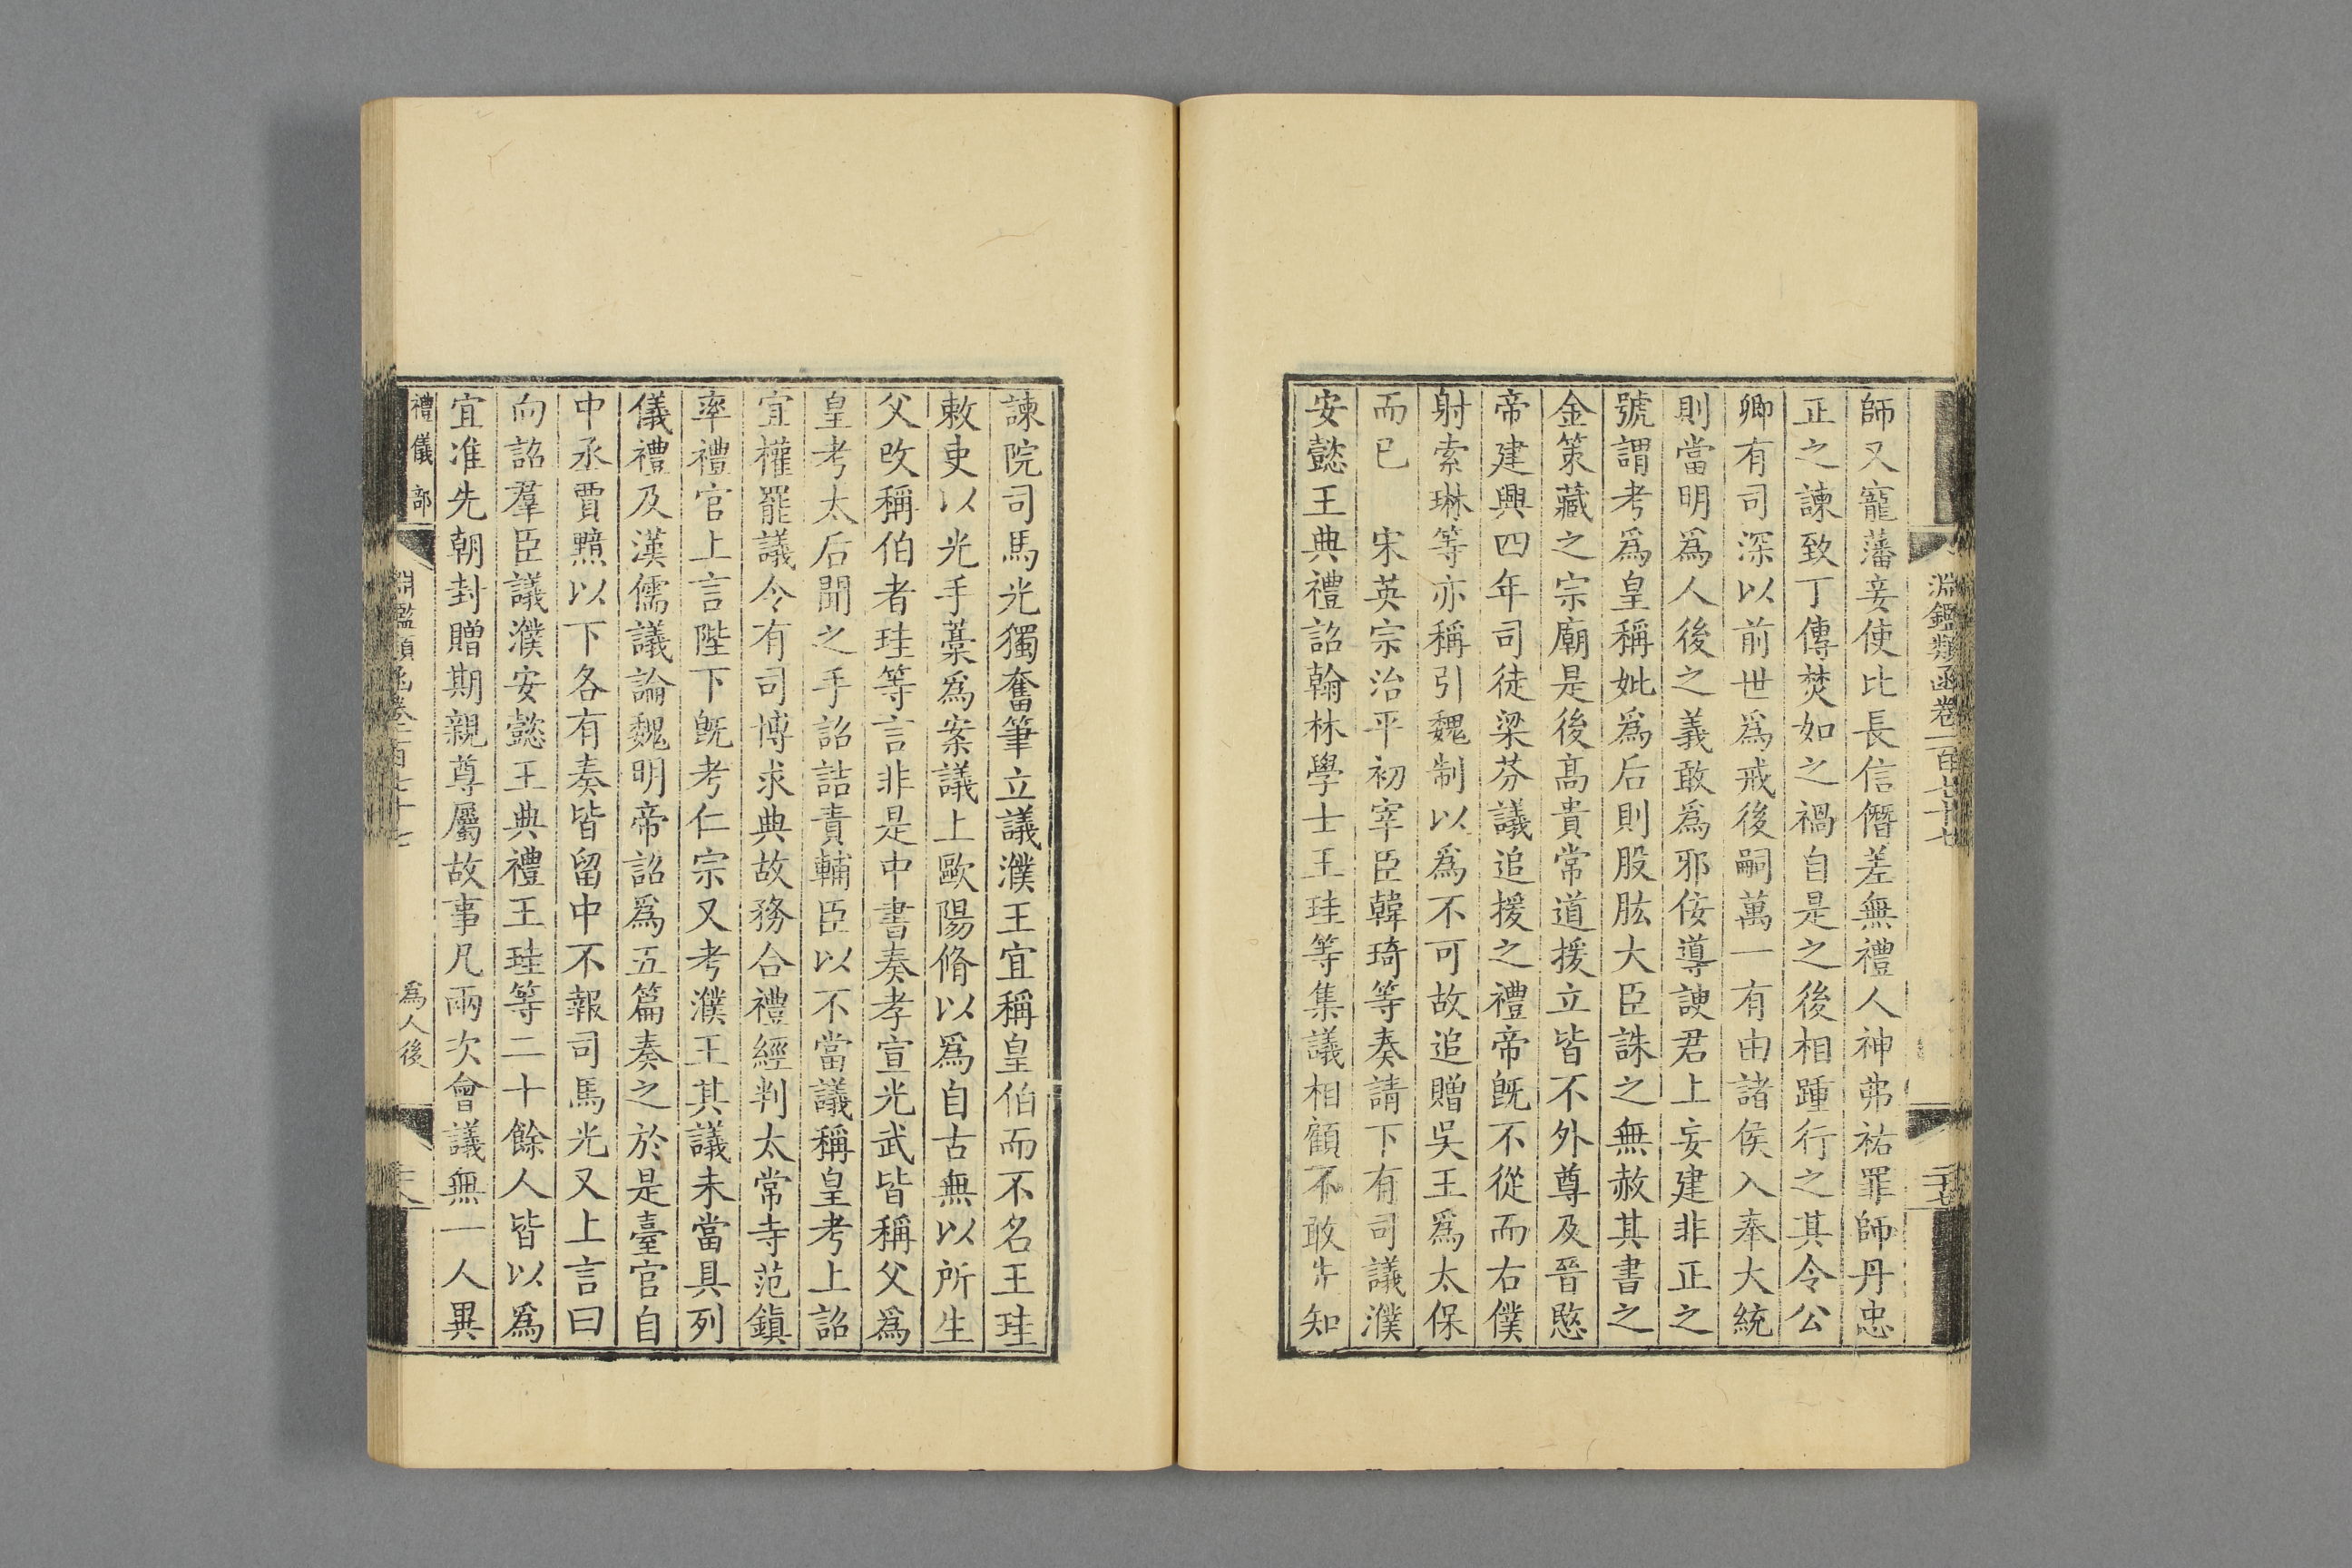 淵鑑類函卷一百七十七
二十七
師又寵藩妾使比長信僭差無禮人神弗祐罪師丹忠
正之諫致丁傳焚如之禍自是之後相踵行之其令公
卿有司深以前世爲戒後嗣萬一有由諸侯入奉大統
則當明爲人後之義敢爲邪佞導諛君上妄建非正之
號謂考爲皇稱妣爲后則股肱大臣誅之無赦其書之
金策藏之宗廟是後高貴常道援立皆不外尊及晉愍
帝建興四年司徒梁芬議追援之禮帝既不從而右僕
射索琳等亦稱引魏制以爲不可故追贈吳王爲太保
而已　宋英宗治平初宰臣韓琦等奏請下有司議濮
安懿王典禮詔翰林學士王珪等集議相顧不敢先知
諫院司馬光獨奮筆立議濮王宜稱皇伯而不名王珪
敕吏以光手藁爲案議上歐陽脩以爲自古無以所生
父改稱伯者珪等言非是中書奏孝宣光武皆稱父爲
皇考太后聞之手詔詰責輔臣以不當議稱皇考上詔
宜權罷議令有司博求典故務合禮經判太常寺范鎭
率禮官上言陛下既考仁宗又考濮王其議未當具列
儀禮及漢儒議論魏明帝詔爲五篇奏之於是臺官自
中丞賈黯以下各有奏皆留中不報司馬光又上言曰
向詔羣臣議濮安懿王典禮王珪等二十餘人皆以爲
宜准先朝封贈期親尊屬故事凡兩次會議無一人異
禮儀部
淵鑑類函卷一百七十七
爲人後